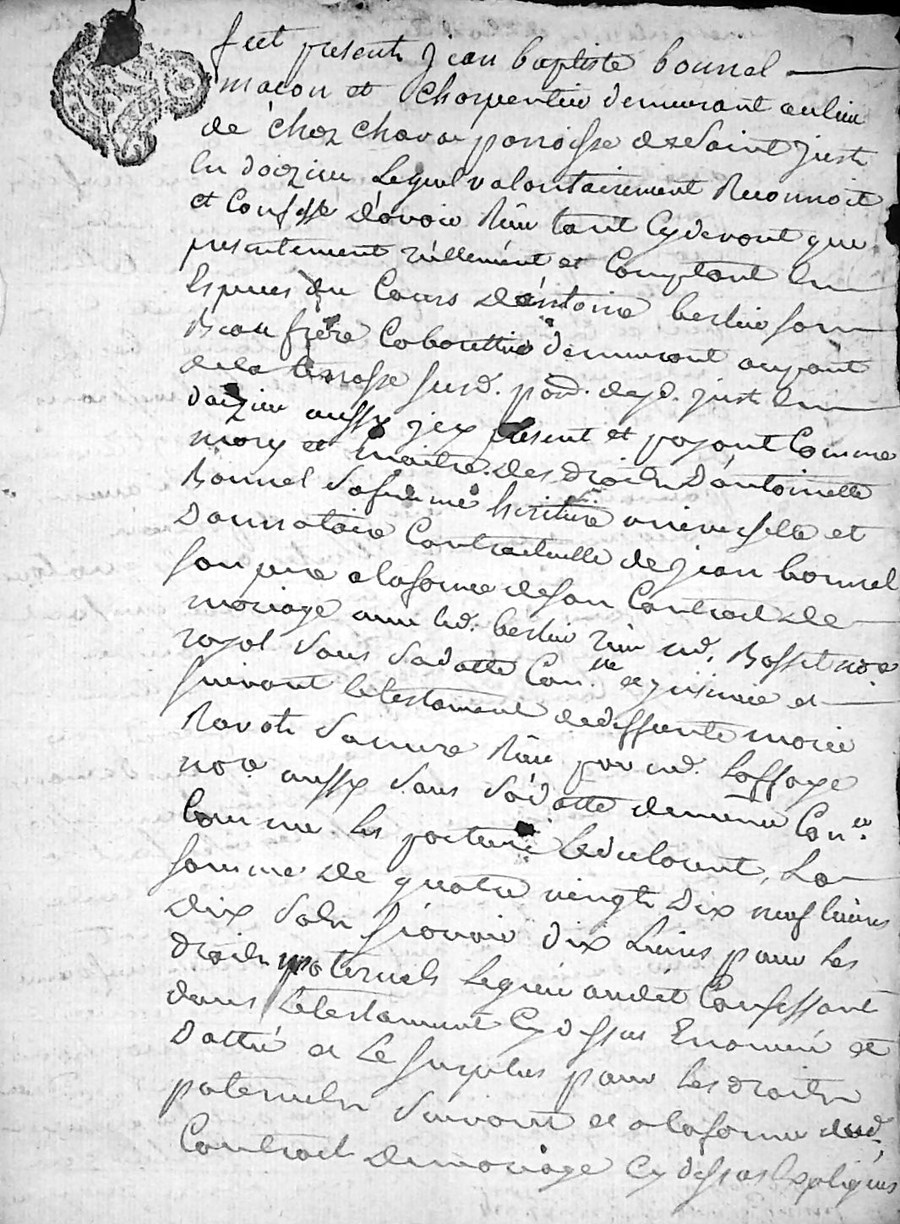 fut present Jean baptiste bonnel
macon et charpentier demeurant au lieu
de chez chavas parroisse de Saint just
en doizieu Lequel volontairement Reconnoit
et Confesse d'avoir Rëeu tant Cydevant que
presentement réellement et Comptant En
Especes du Cours d'antoine berlier son
Beau frère Cabouttier demeurant au
de la terrasse susd. parr. de sd. just En
doizieu aussy icy present et payant Comme
mary et maitre des droits d'antoinette
Bonnel sa femme heritiere universelle et
Donnataire Contractuelle de jean bonnel
son pere a la forme de son Contract de
mariage avec led. berlier reeu me. Bassel nore
royal sous sa datte Con.lle et insinué et
suivant le testament de deffunte marie
Ravat sa mere Rëeu par me. Laffaye
nore aussy sous sa datte deument Con.llé
Comme les parties le declarent, La
somme de quatre vingt dix neuf livres
dix sols sçavoir dix livres pour les
droits maternels Legué audit Confessant
dans Letestament Cy dessus Enoncé et
datté et Le surplus pour Les droits
paternels suivant et a la forme dud.
Contract de mariage Cy dessus Expliqués